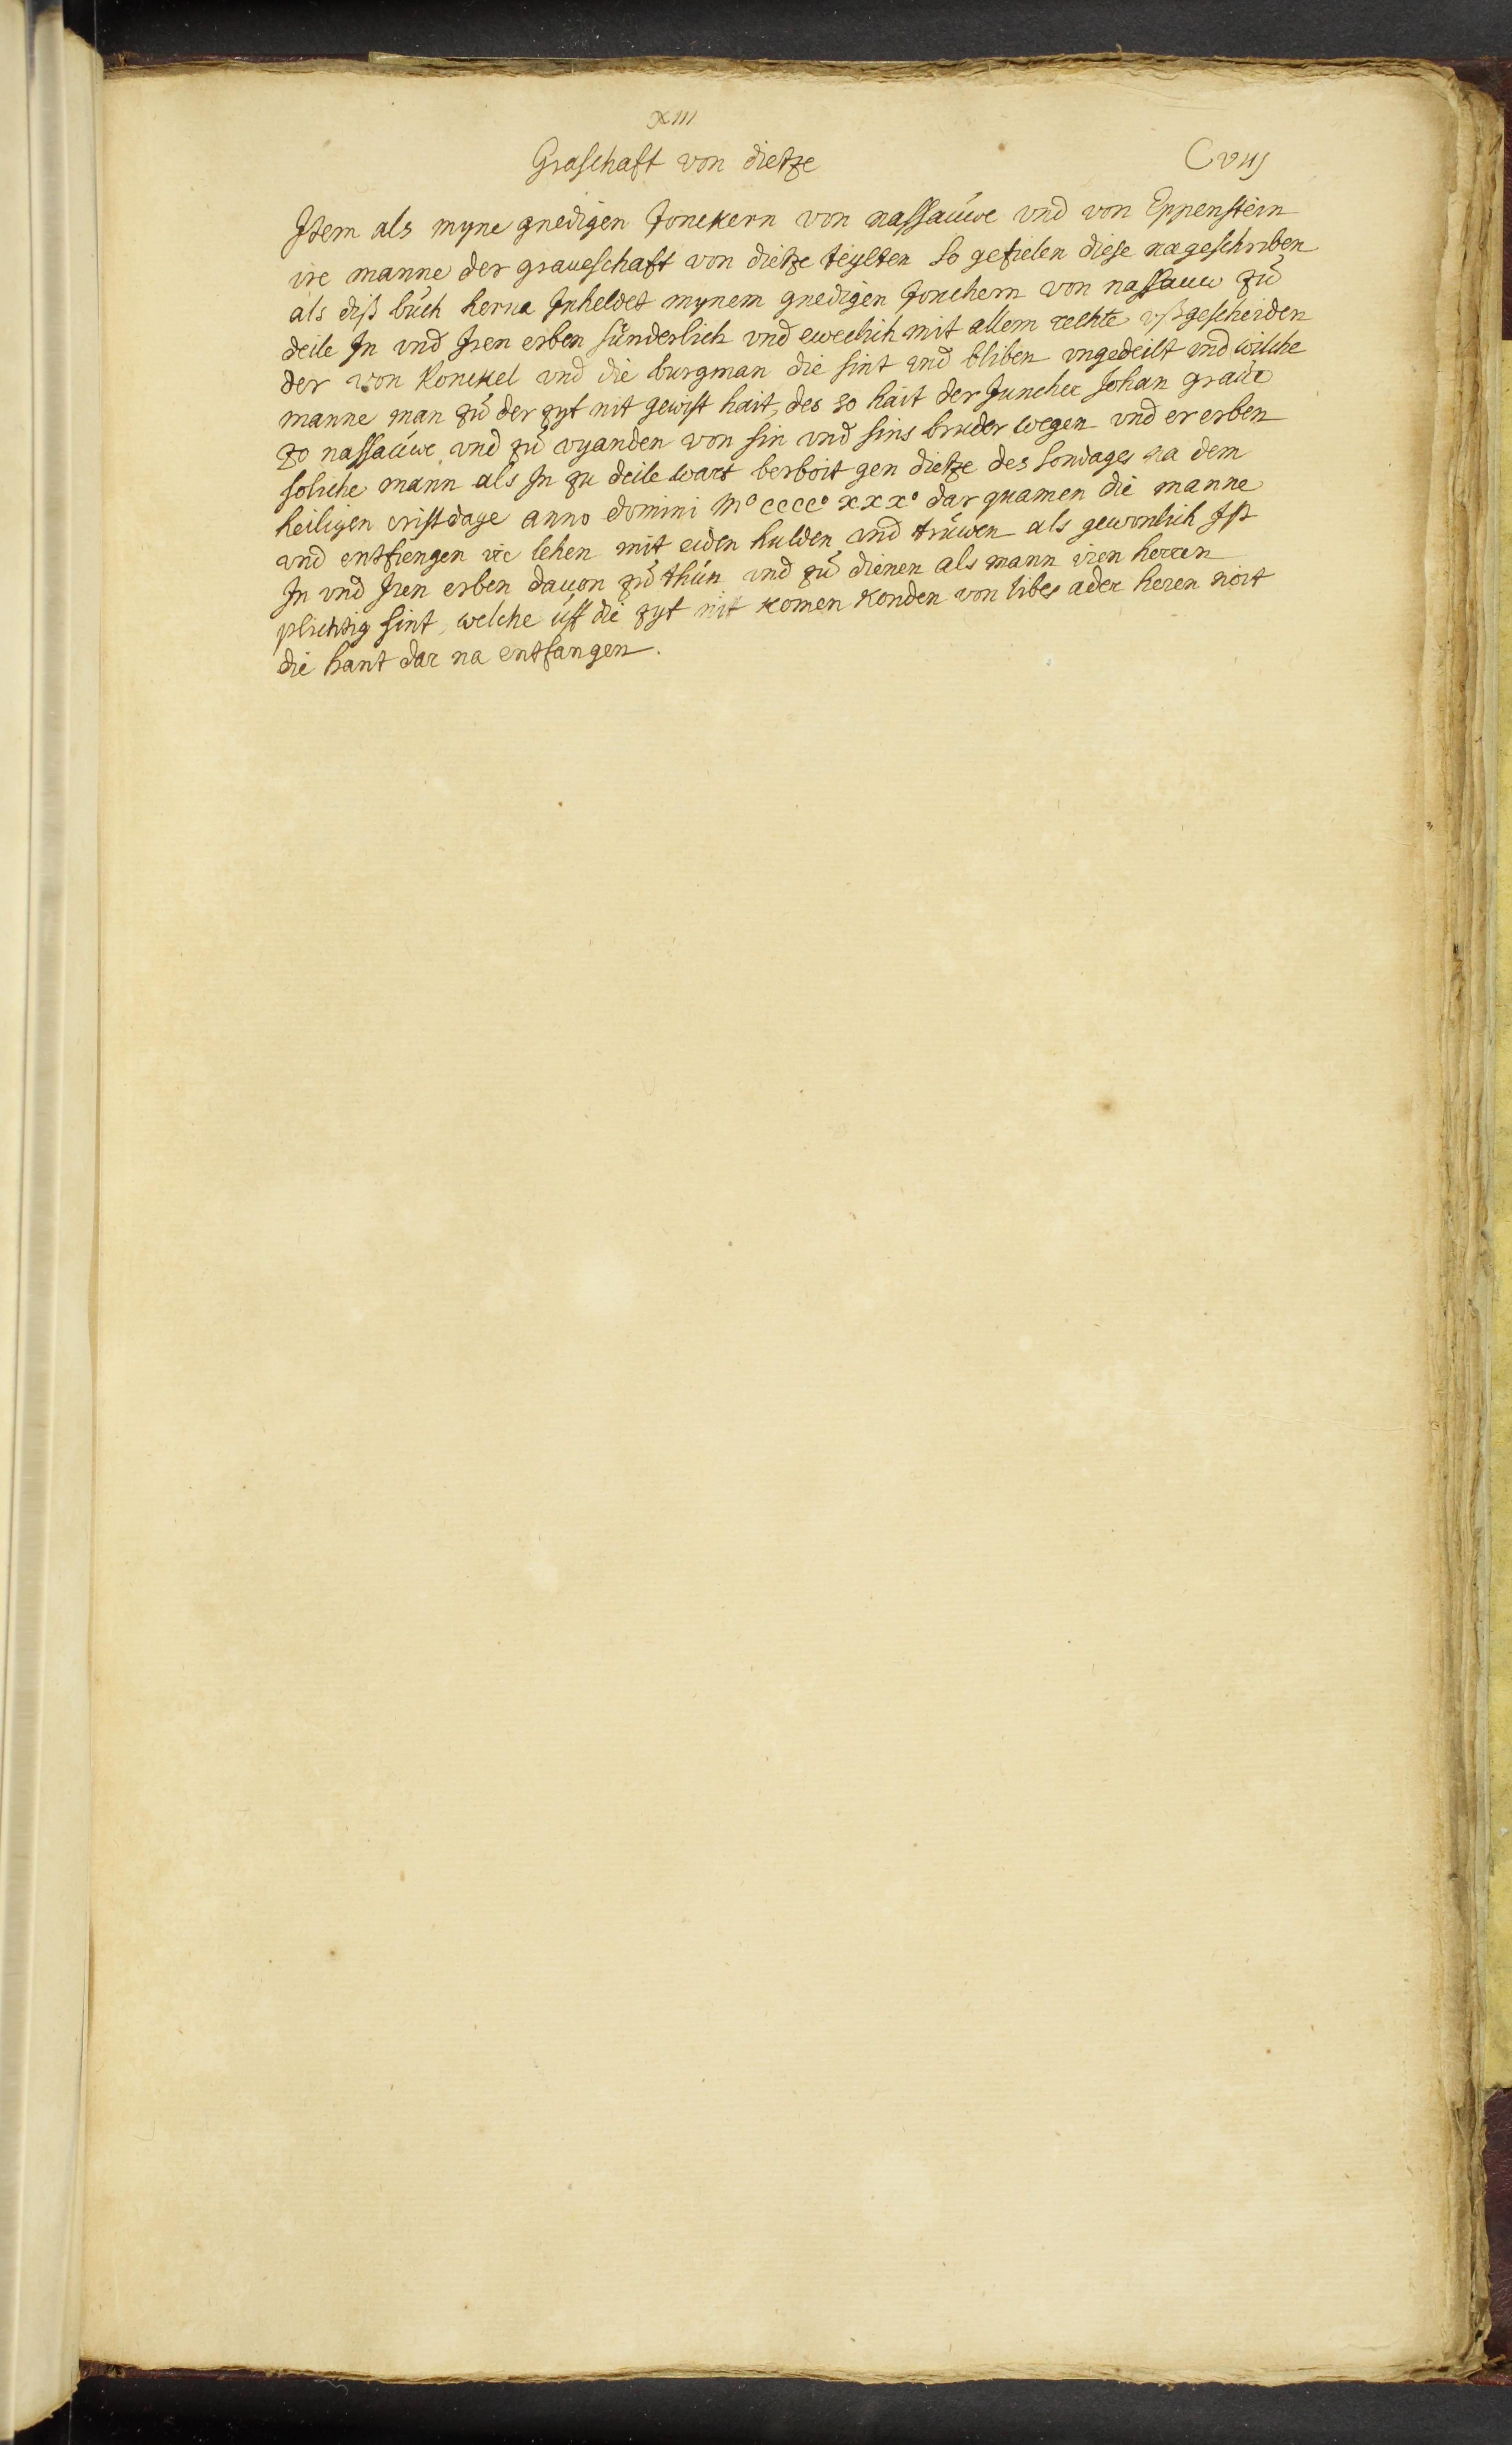 XIII
Graschaft von dietze
CVIIJ
Item als myne gnedigen Jonckern von nassaúwe vnd von Eppenstein
ire manne der graueschaft von dietze teylten so gefielen diese nageschriben
als diß búch herna Jnheldet mynem gnedigen Jonchern von nassauw zú
deile Jn vnd Jren erben súnderlich vnd eweclich mit allem rechte vßgescheiden
der von Ronckel vnd die burgman die sint vnd bliben vngedeilt vnd wilche
manne man zú der zyt nit gewist hait, des so hait der Juncher Johan graúe
zo nassaúwe vnd zú vyanden von sin vnd sins bruder wegen vnd er erben
soliche mann als Jn zu deile wart berboit gen dietze des sondages na dem
heiligen cristdage anno domini Mº ccccº xxxº dar quamen die manne
vnd entfiengen ire lehen mit eiden hulden vnd trúwen als gewonlich Jst
Jn vnd Jren erben dauon zú thún vnd zú dienen als mann iren herren
plichtig sint, welche úff die zyt nit komen konden von libes ader heren noit
die hant dar na entfangen.